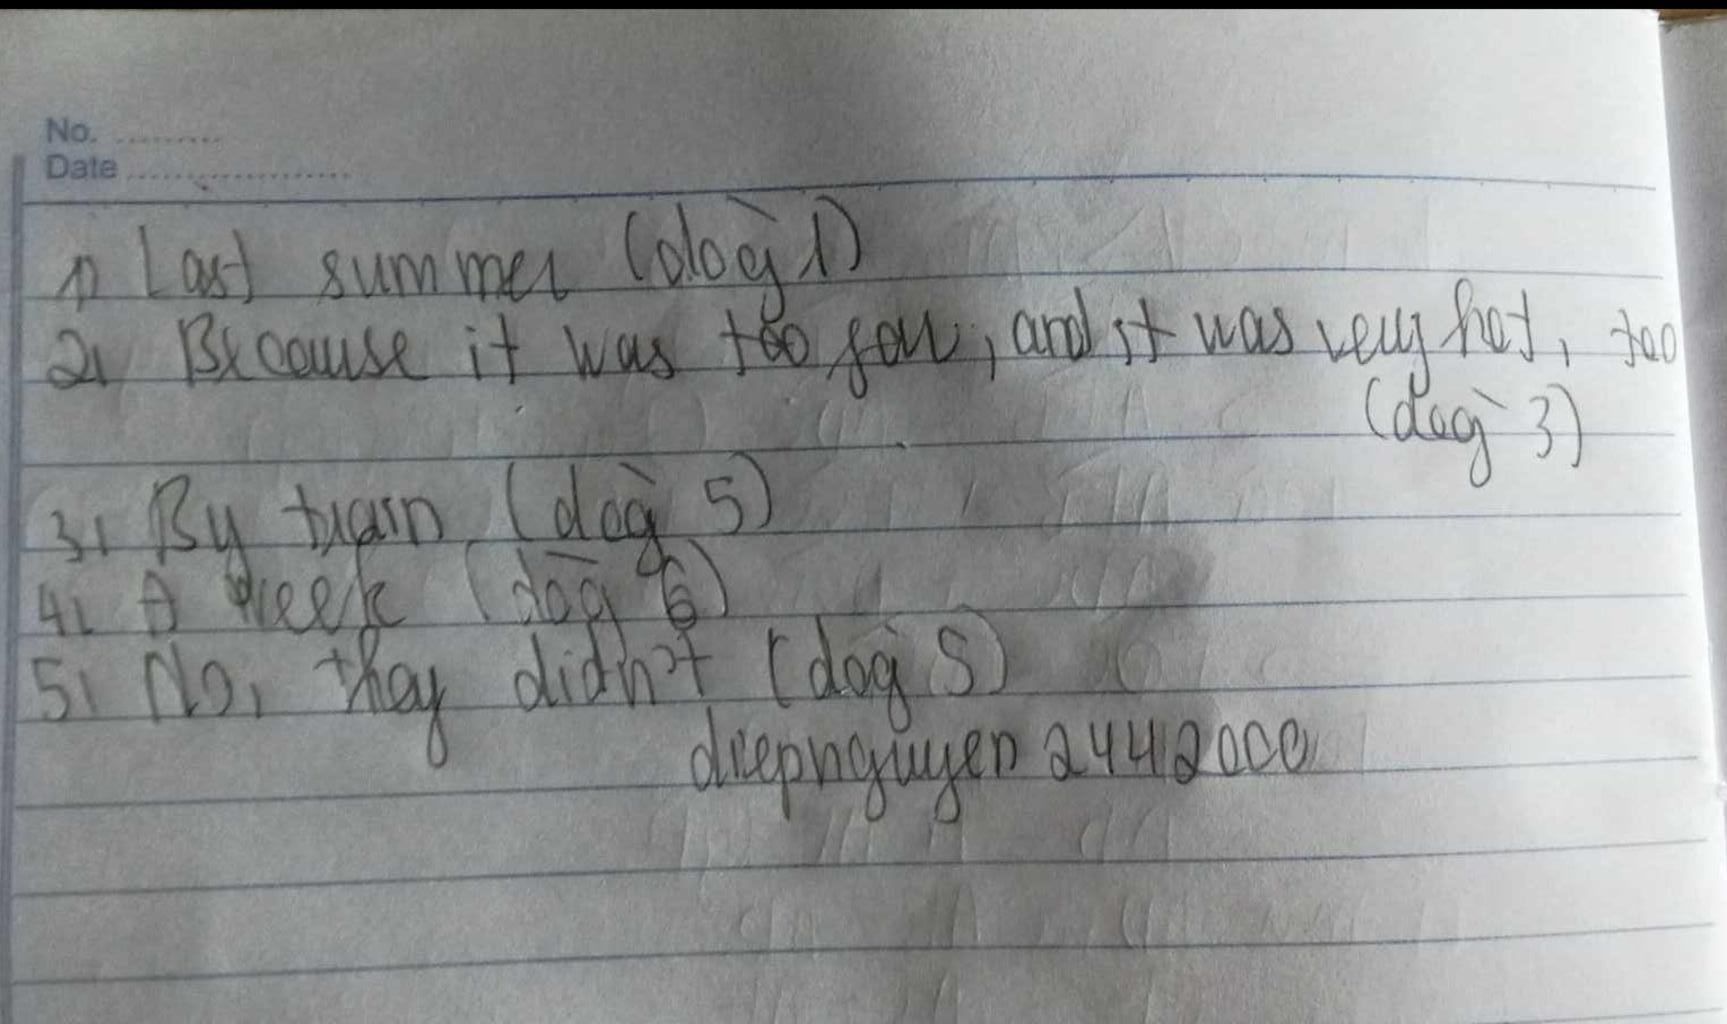 No. ..........
Date ......................
1) Last summer (dòg 1)
2, Because it was too far, and it was very hot, too
(dòg 3)
3, By train (dòg 5)
4, A week (dòg 6)
5, No, they didn't (dòg 5)
diepnguyen2442000